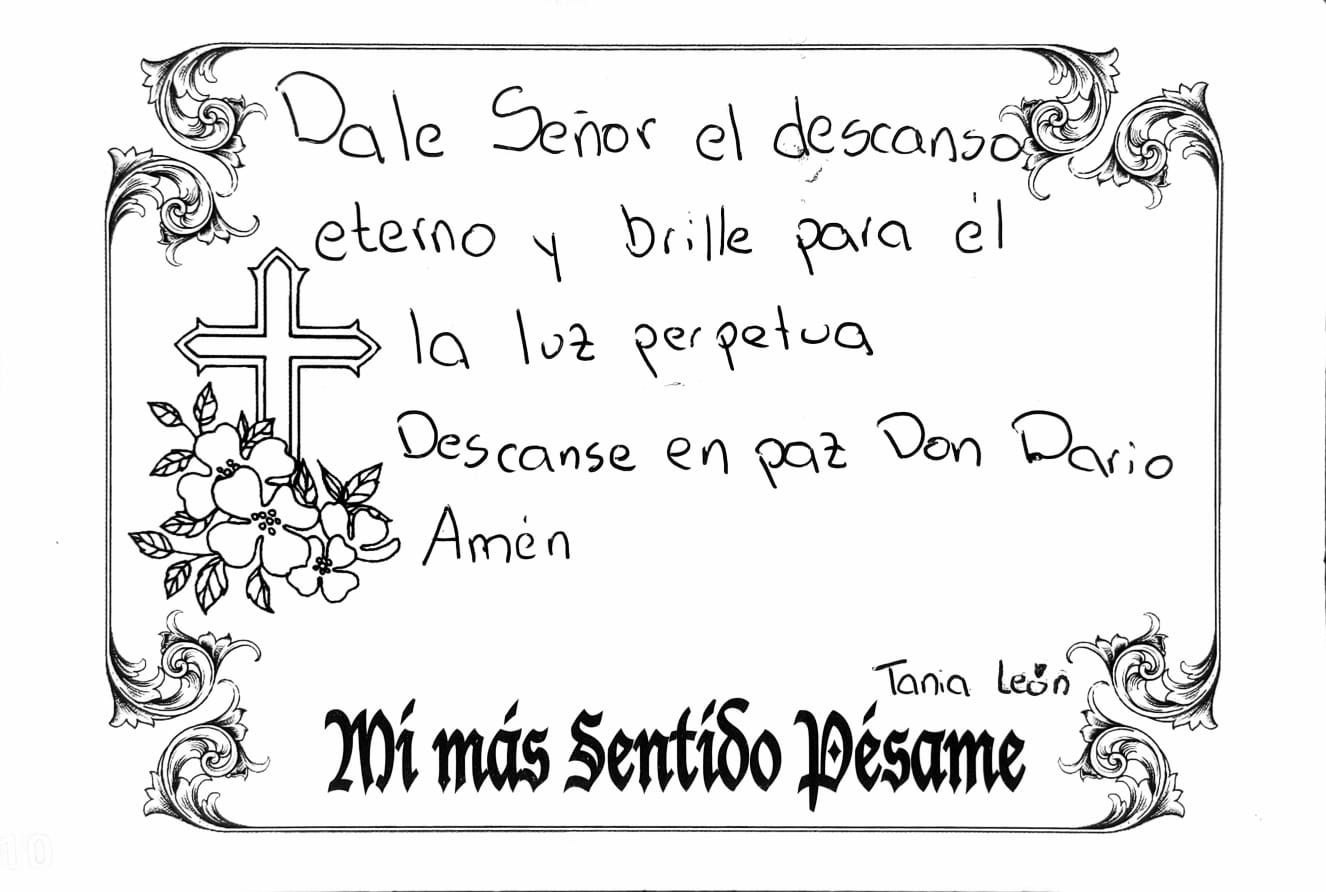 Dale Señor el descanso
eterno y brille para él
la luz perpetua
Descanse en paz Don Dario
Amén
Tania León
Mi más Sentido Pésame
10